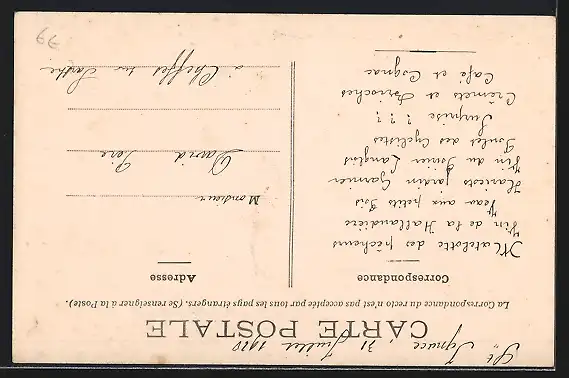 St Ignace 31 Juillet 1910
CARTE POSTALE
La Correspondance du recto n'est pas acceptée par tous les pays étrangers. (Se renseigner à la Poste).
Correspondance
Matelotte des pêcheurs
Vin de la Hallaudière
Veau aux petits Pois
Haricots jardin Garnier
Vin du Fosnier Langlois
Poulet des Cyclistes
Surprise ? ? ?
Crèmets et Brioches
Café et Cognac
Adresse
Monsieur
David Père
à Cheffes sur Sarthe